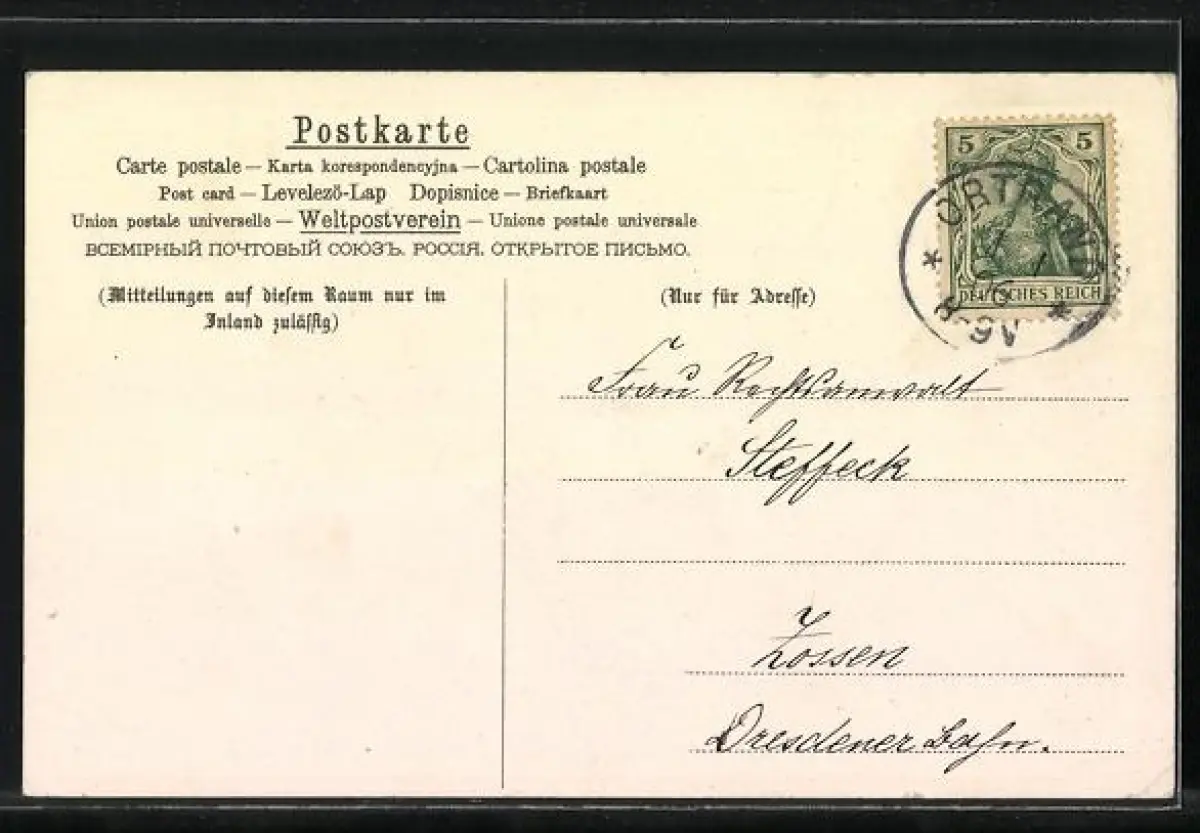 Postkarte
Carte postale — Karta korespondencyjna — Cartolina postale
Post card — Levelező-Lap Dopisnice — Briefkaart
Union postale universelle — Weltpostverein — Unione postale universale
ВСЕМІРНЫЙ ПОЧТОВЫЙ СОЮЗЪ. РОССІЯ. ОТКРЫТОЕ ПИСЬМО.
(Mitteilungen auf diesem Raum nur im
Inland zulässig)
(Nur für Adresse)
5 5
DEUTSCHES REICH
* ORTRAND *
8-9V
Frau Rechtsanwalt
Steffeck
Zossen
Dresdener Bahn.